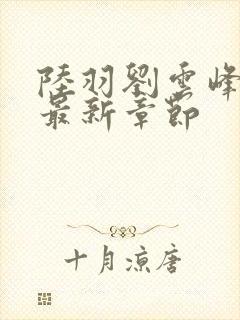 陸羽劉雲峰
最新章節
十月涼唐